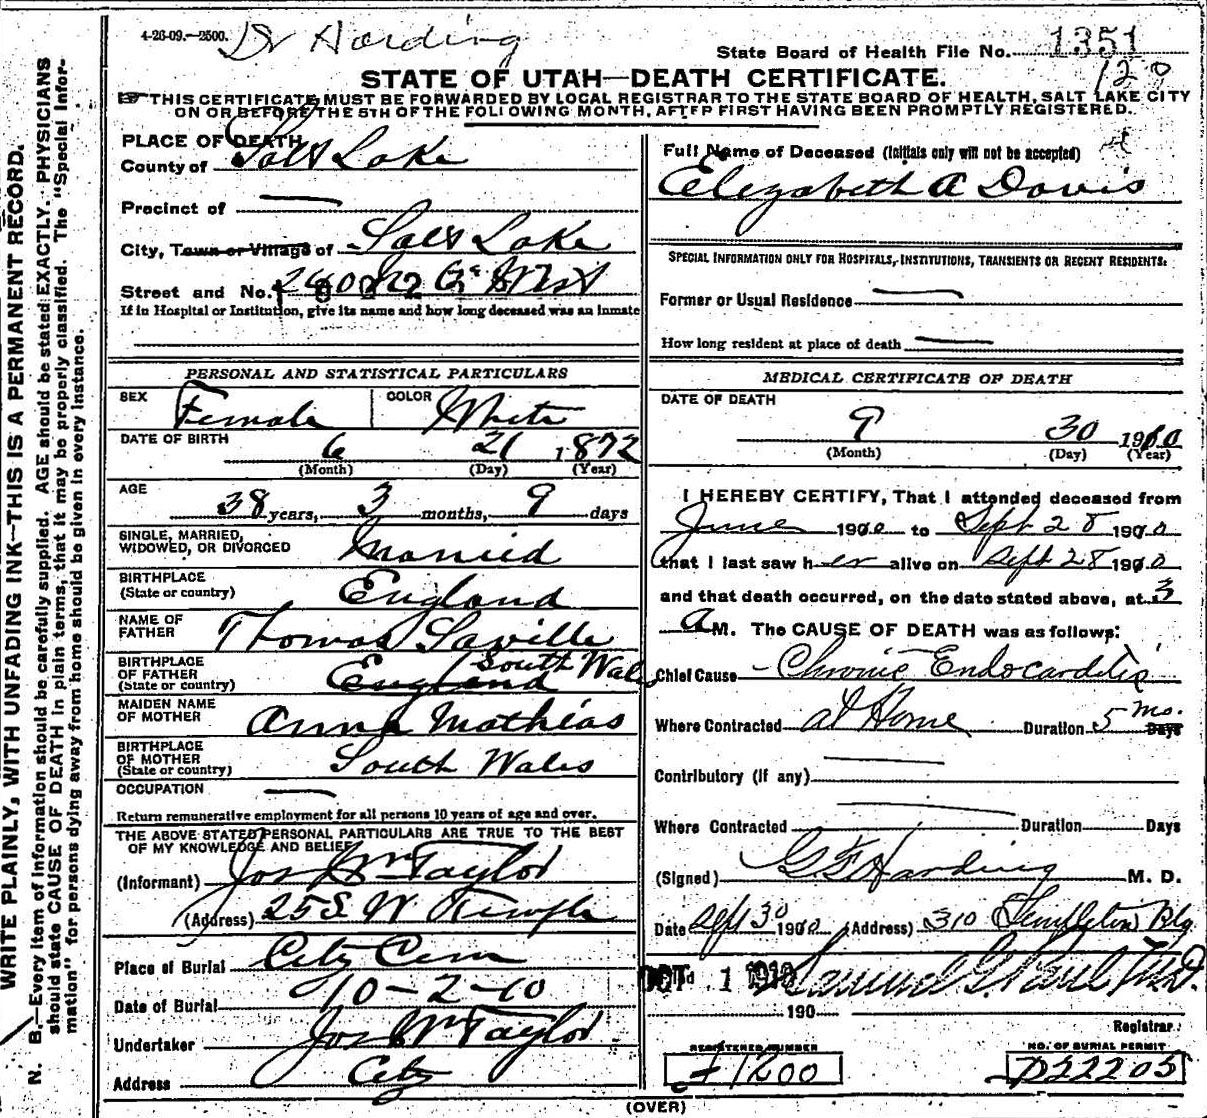 4-26-09.—2500. Dr Harding
State Board of Health File No. 1351
120
STATE OF UTAH—DEATH CERTIFICATE.
THIS CERTIFICATE MUST BE FORWARDED BY LOCAL REGISTRAR TO THE STATE BOARD OF HEALTH, SALT LAKE CITY
ON OR BEFORE THE 5TH OF THE FOLLOWING MONTH, AFTER FIRST HAVING BEEN PROMPTLY REGISTERED.
WRITE PLAINLY, WITH UNFADING INK—THIS IS A PERMANENT RECORD.
N. B.—Every item of information should be carefully supplied. AGE should be stated EXACTLY. PHYSICIANS
should state CAUSE OF DEATH in plain terms, that it may be properly classified. The "Special Infor-
mation" for persons dying away from home should be given in every instance.
PLACE OF DEATH
County of Salt Lake
Precinct of —
City, Town or Village of Salt Lake
Street and No.
If in Hospital or Institution, give its name and how long deceased was an inmate
PERSONAL AND STATISTICAL PARTICULARS
SEX Female COLOR White
DATE OF BIRTH 6 21 1872
(Month) (Day) (Year)
AGE 38 years, 3 months, 9 days
SINGLE, MARRIED,
WIDOWED, OR DIVORCED Married
BIRTHPLACE
(State or country) England
NAME OF
FATHER Thomas Saville
BIRTHPLACE
OF FATHER South Wales
(State or country) England
MAIDEN NAME
OF MOTHER Anna Mathias
BIRTHPLACE
OF MOTHER
(State or country) South Wales
OCCUPATION —
Return remunerative employment for all persons 10 years of age and over.
THE ABOVE STATED PERSONAL PARTICULARS ARE TRUE TO THE BEST
OF MY KNOWLEDGE AND BELIEF
(Informant) Jos Wm Taylor
(Address) 25 S. W. Temple
Place of Burial City Cem
Date of Burial 10-2-10
Undertaker Jos Wm Taylor
Address City
Full Name of Deceased (Initials only will not be accepted)
Elizabeth A Davis
SPECIAL INFORMATION ONLY FOR HOSPITALS, INSTITUTIONS, TRANSIENTS OR RECENT RESIDENTS:
Former or Usual Residence —
How long resident at place of death —
MEDICAL CERTIFICATE OF DEATH
DATE OF DEATH
9 30 1910
(Month) (Day) (Year)
I HEREBY CERTIFY, That I attended deceased from
June 1910 to Sept 28 1910
that I last saw her alive on Sept 28 1910
and that death occurred, on the date stated above, at 3
A M. The CAUSE OF DEATH was as follows:
Chief Cause Chronic Endocarditis
Where Contracted at Home Duration 5 mo. Days
Contributory (if any) —
Where Contracted — Duration Days
(Signed) G F Harding M. D.
Date Sept 30 1910 (Address) 310 Templeton Blg
OCT 1 1910 Samuel G. Paul M.D.
190
Registrar
REGISTERED NUMBER
1200
NO. OF BURIAL PERMIT
D22205
(OVER)